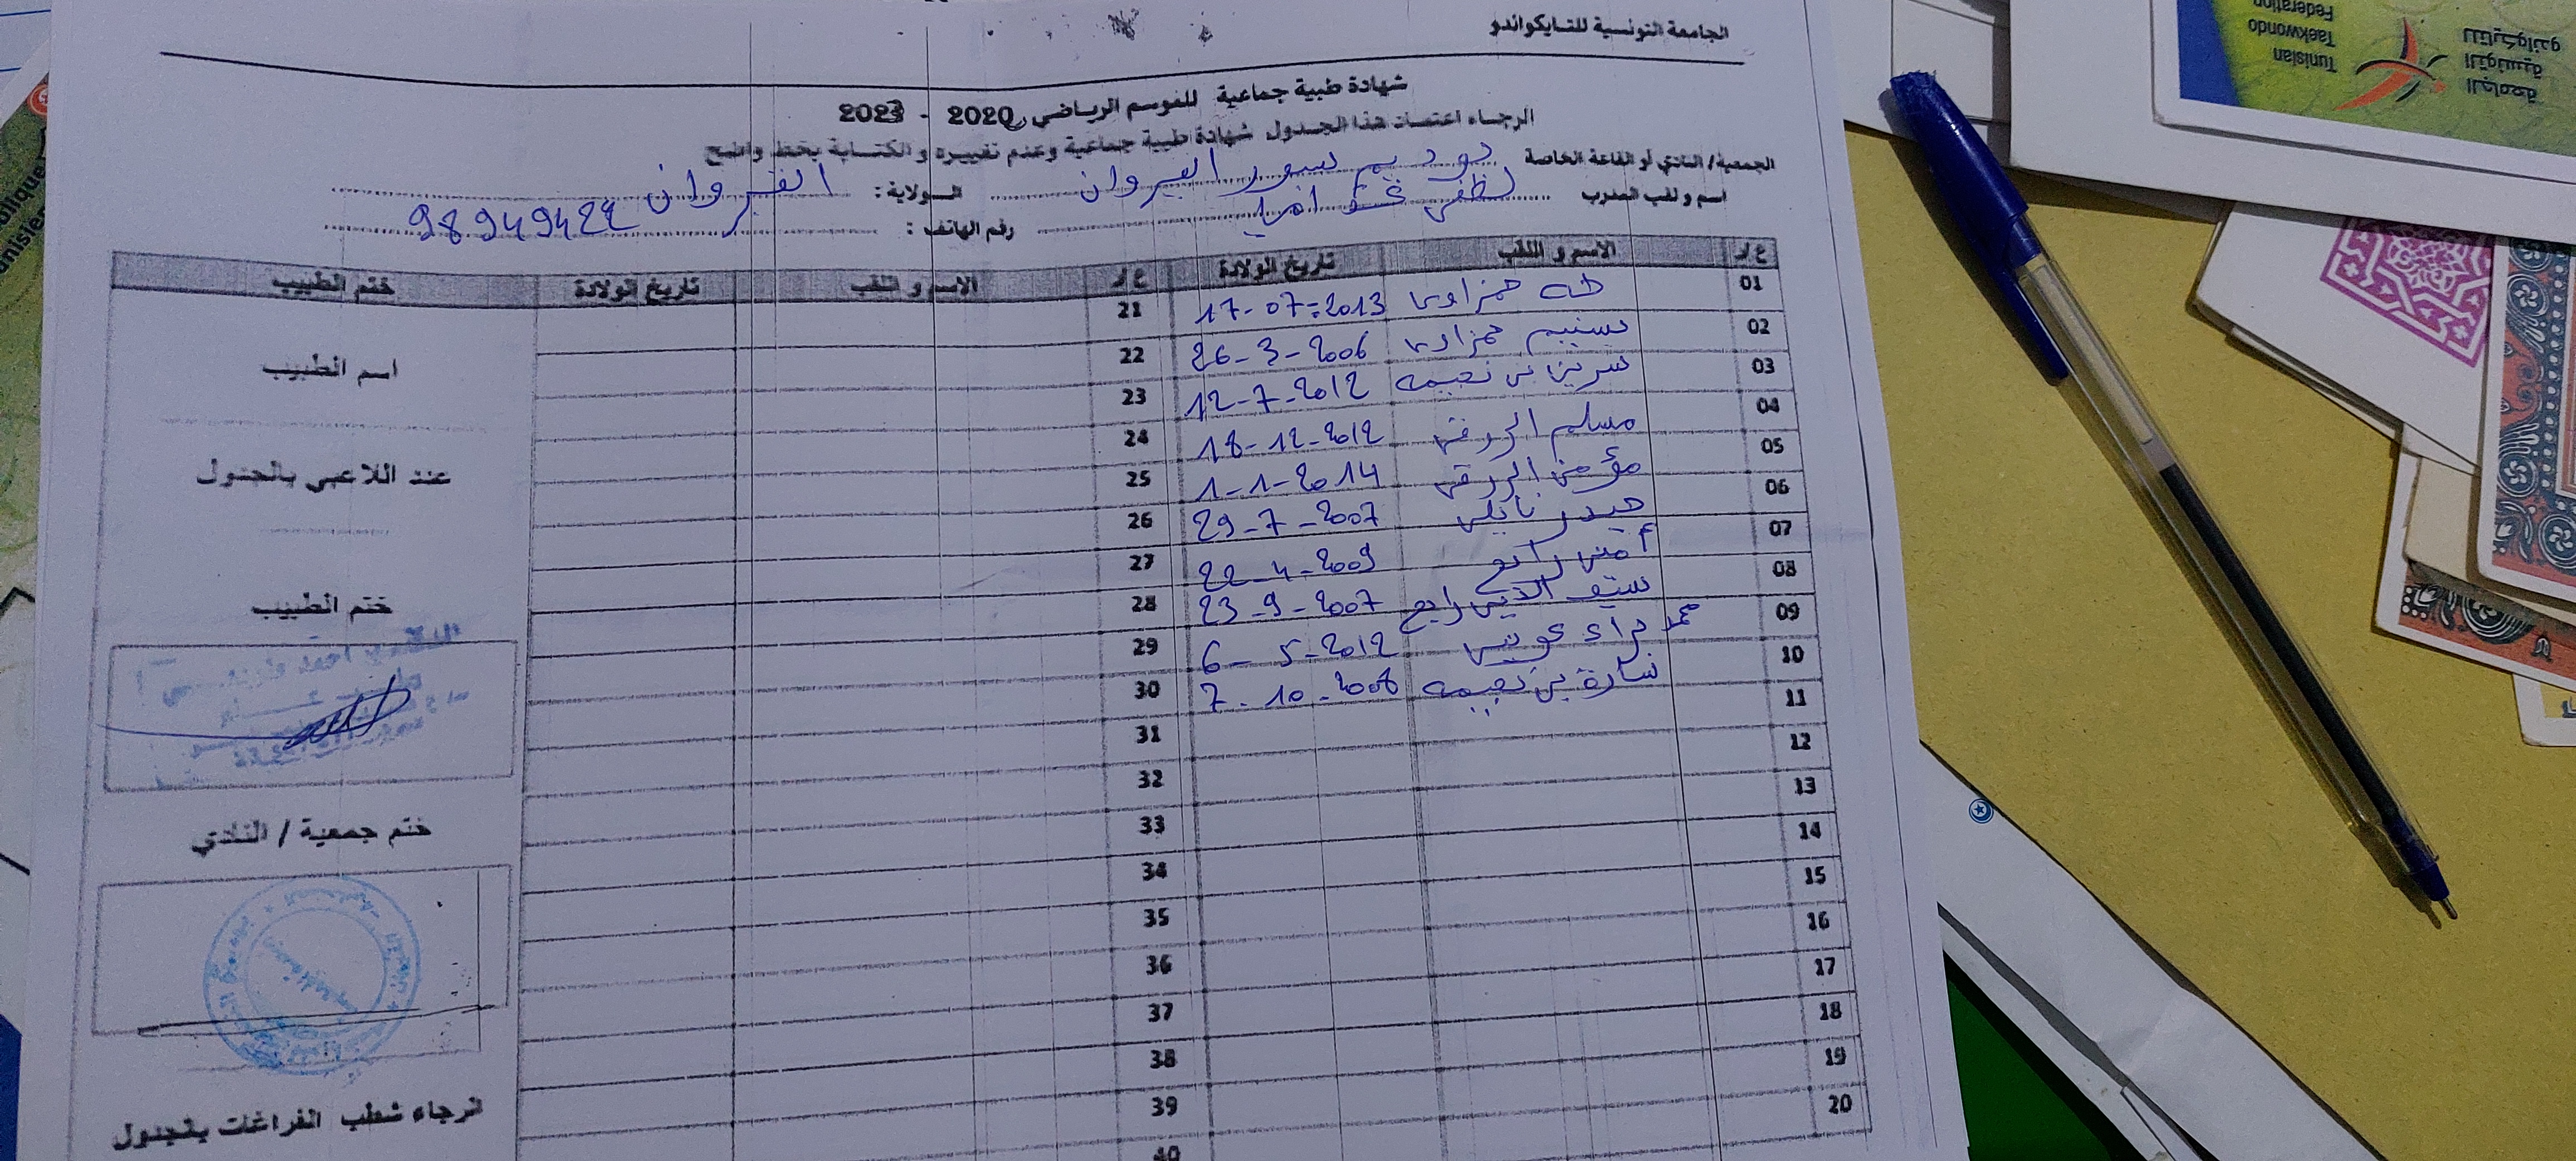 الجامعة التونسية للتايكواندو
شهادة طبية جماعية للموسم الرياضي 2020 - 2023
الرجاء اعتماد هذا الجدول شهادة طبية جماعية وعدم تغييره و الكتابة بخط واضح
الجمعية/ النادي أو القاعة الخاصة
القيروان
اسم و لقب المدرب لطفي
الولاية : القيروان
رقم الهاتف : 98949422
ع/ر الاسم و اللقب تاريخ الولادة ع/ر الاسم و اللقب تاريخ الولادة ختم الطبيب
01 طه حمزاوي 17-07-2013 21
02 تسنيم حمزاوي 26-3-2006 22
03 سرين بن نعيمه 12-7-2012 23
04 مسلم 18-12-2012 24
05 مؤمن 1-1-2014 25
06 حيدر نايلي 29-7-2007 26
07 أمين رابح 22-4-2009 27
08 سيف الدين رابح 23-9-2007 28
09 محمد براء عويني 6-5-2012 29
10 سارة بن نعيمه 7-10-2008 30
11 31
12 32
13 33
14 34
15 35
16 36
17 37
18 38
19 39
20 40
اسم الطبيب
عدد اللاعبي بالجدول
ختم الطبيب
ختم جمعية / النادي
الرجاء شطب الفراغات بالجدول
Tunisian
Taekwondo
Federation
الجامعة
التونسية
للتايكواندو